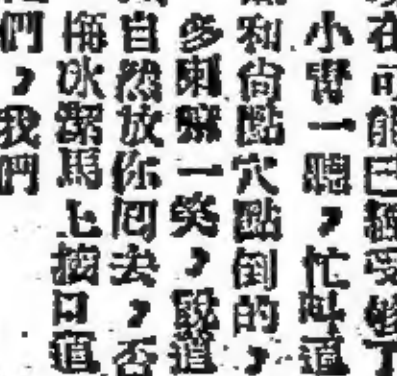 在可能已經受
小雷一聽，忙叫道
和尚點穴點倒的，
多喇嘛一笑，說道
自然放你回去，否
梅冰潔馬上接口道
們，我們